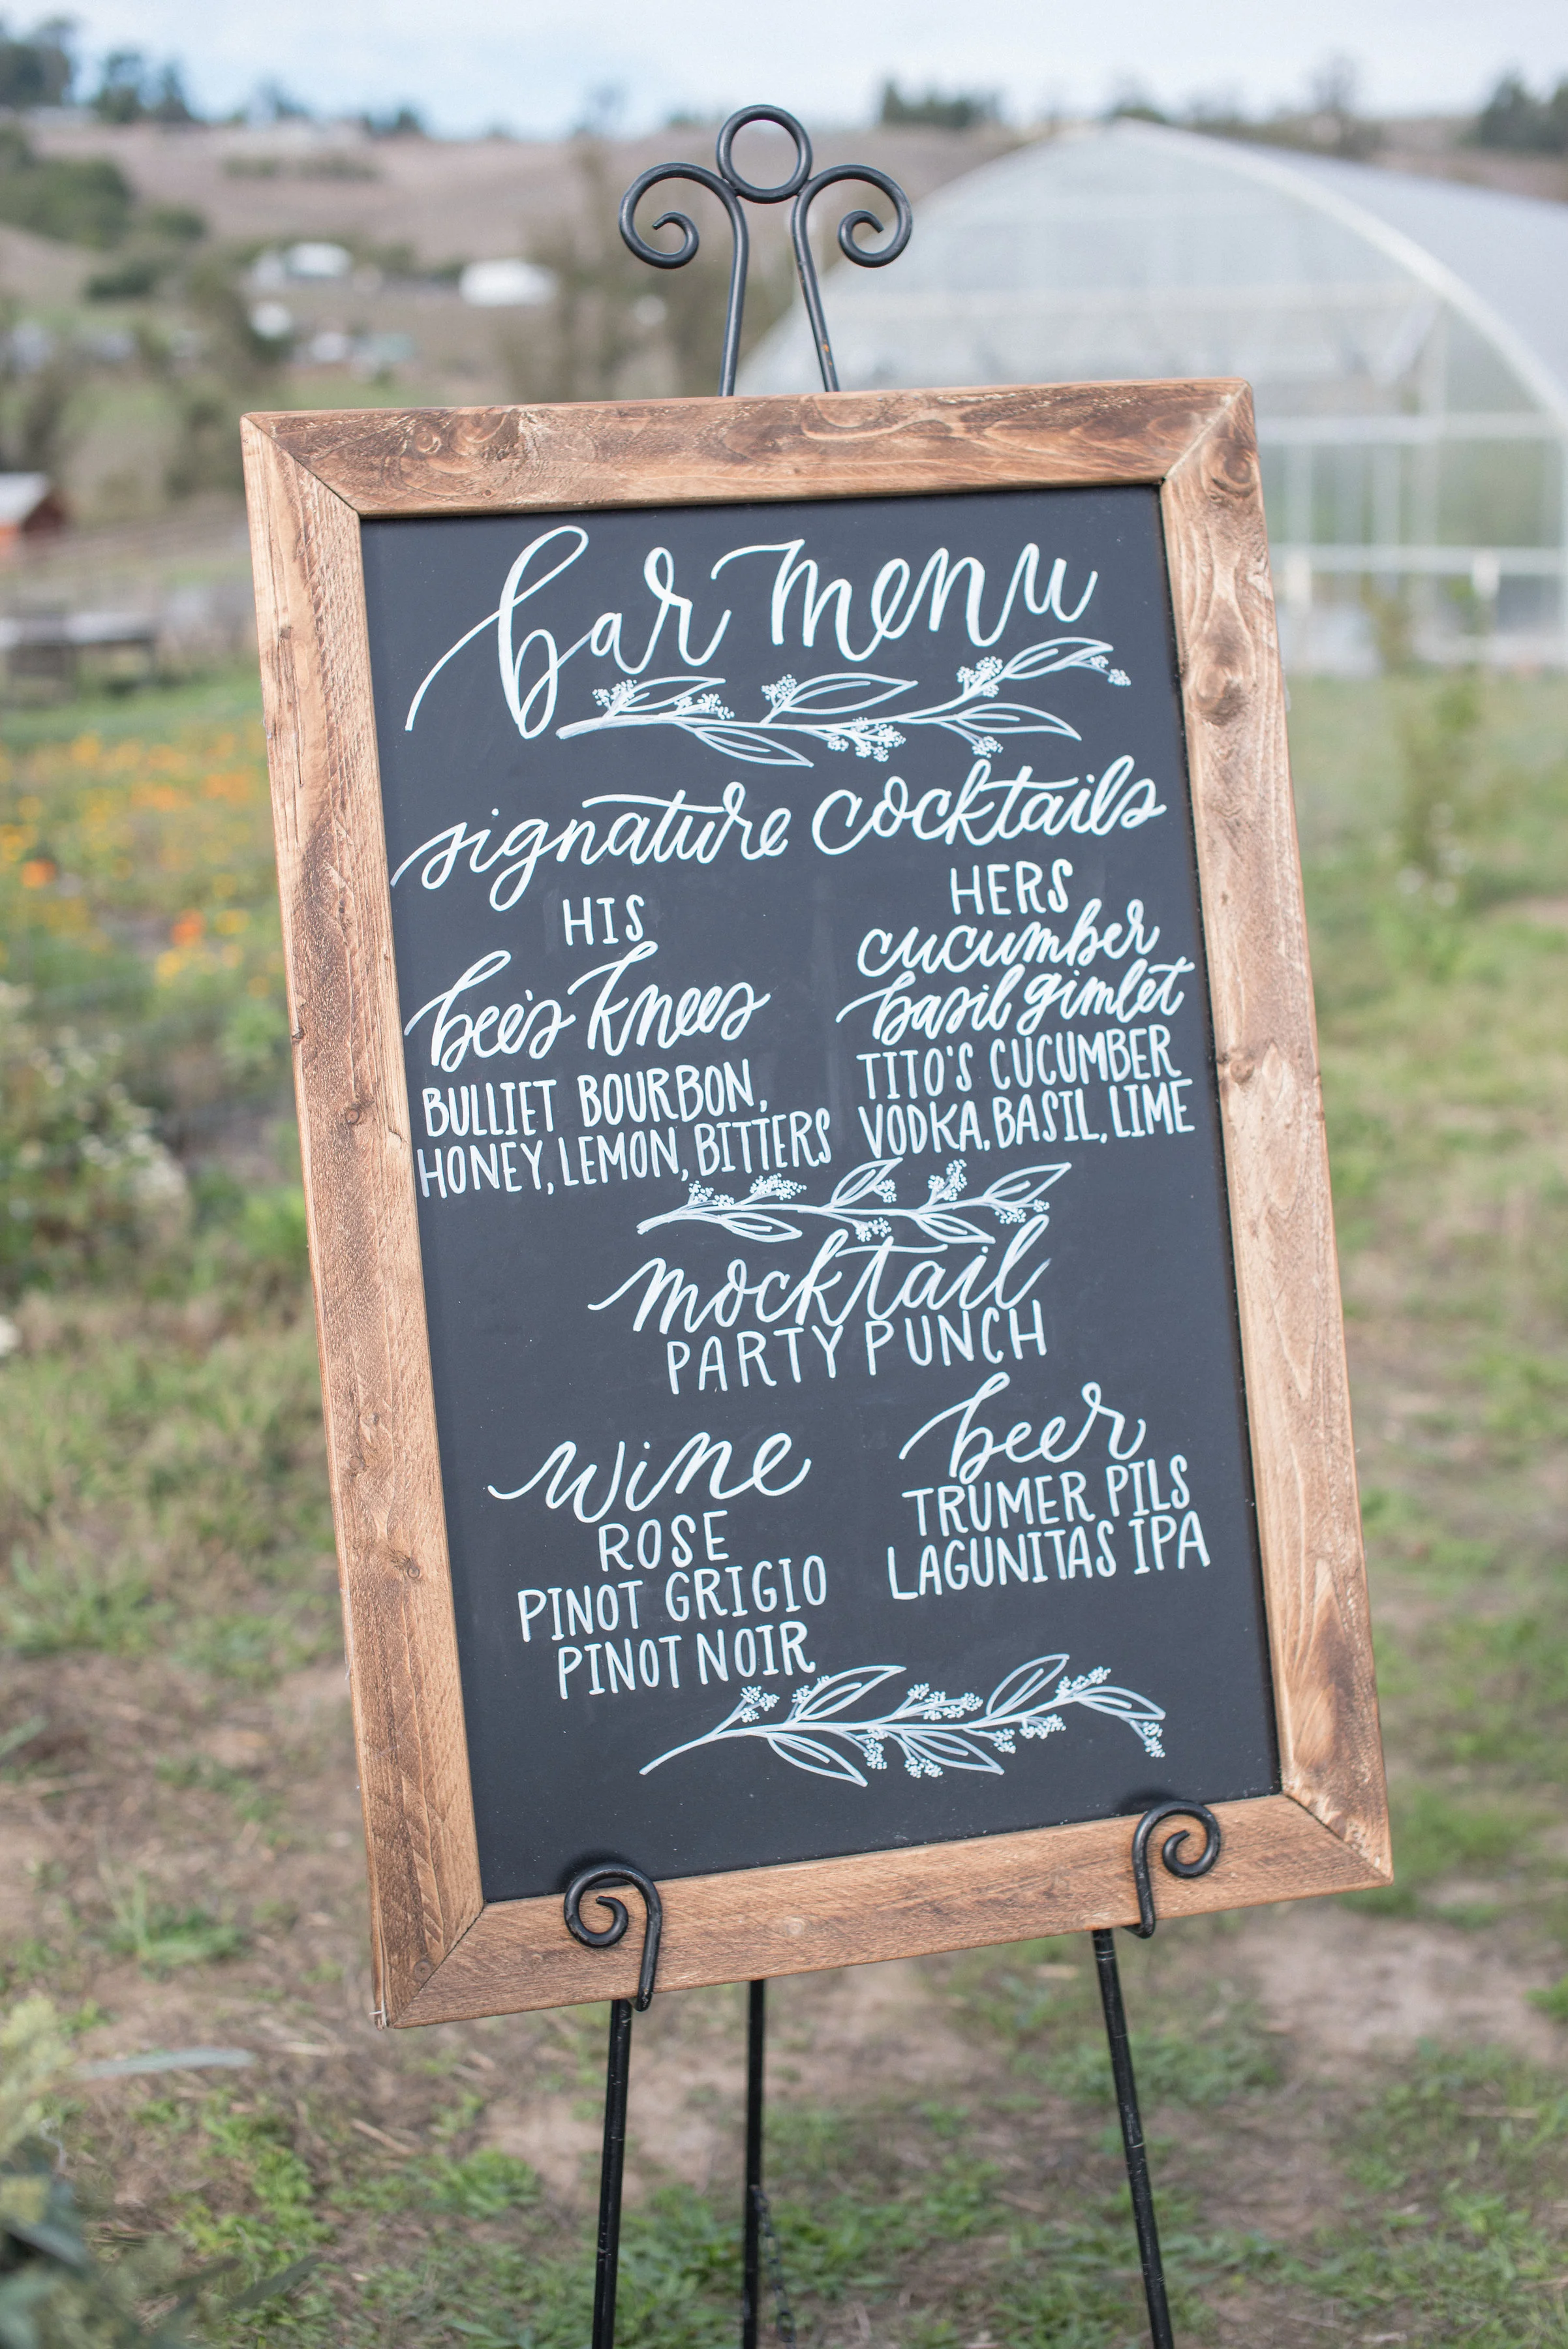 bar menu
signature cocktails
HIS
bee's knees
BULLIET BOURBON,
HONEY, LEMON, BITTERS
HERS
cucumber
basil gimlet
TITO'S CUCUMBER
VODKA, BASIL, LIME
mocktail
PARTY PUNCH
wine
ROSE
PINOT GRIGIO
PINOT NOIR
beer
TRUMER PILS
LAGUNITAS IPA